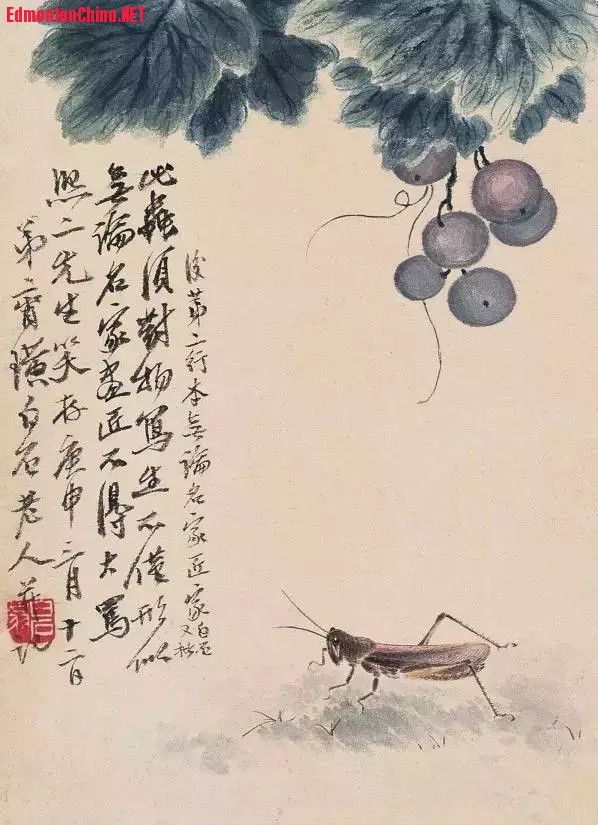 EdmontonChina.NET
後第二行本無論名家匠家
白石又
此蟲須對物寫生不僅形似
無論名家畫匠不得大罵
熙二先生笑存庚申三月十二日
弟齊璜白石老人並記
白石翁